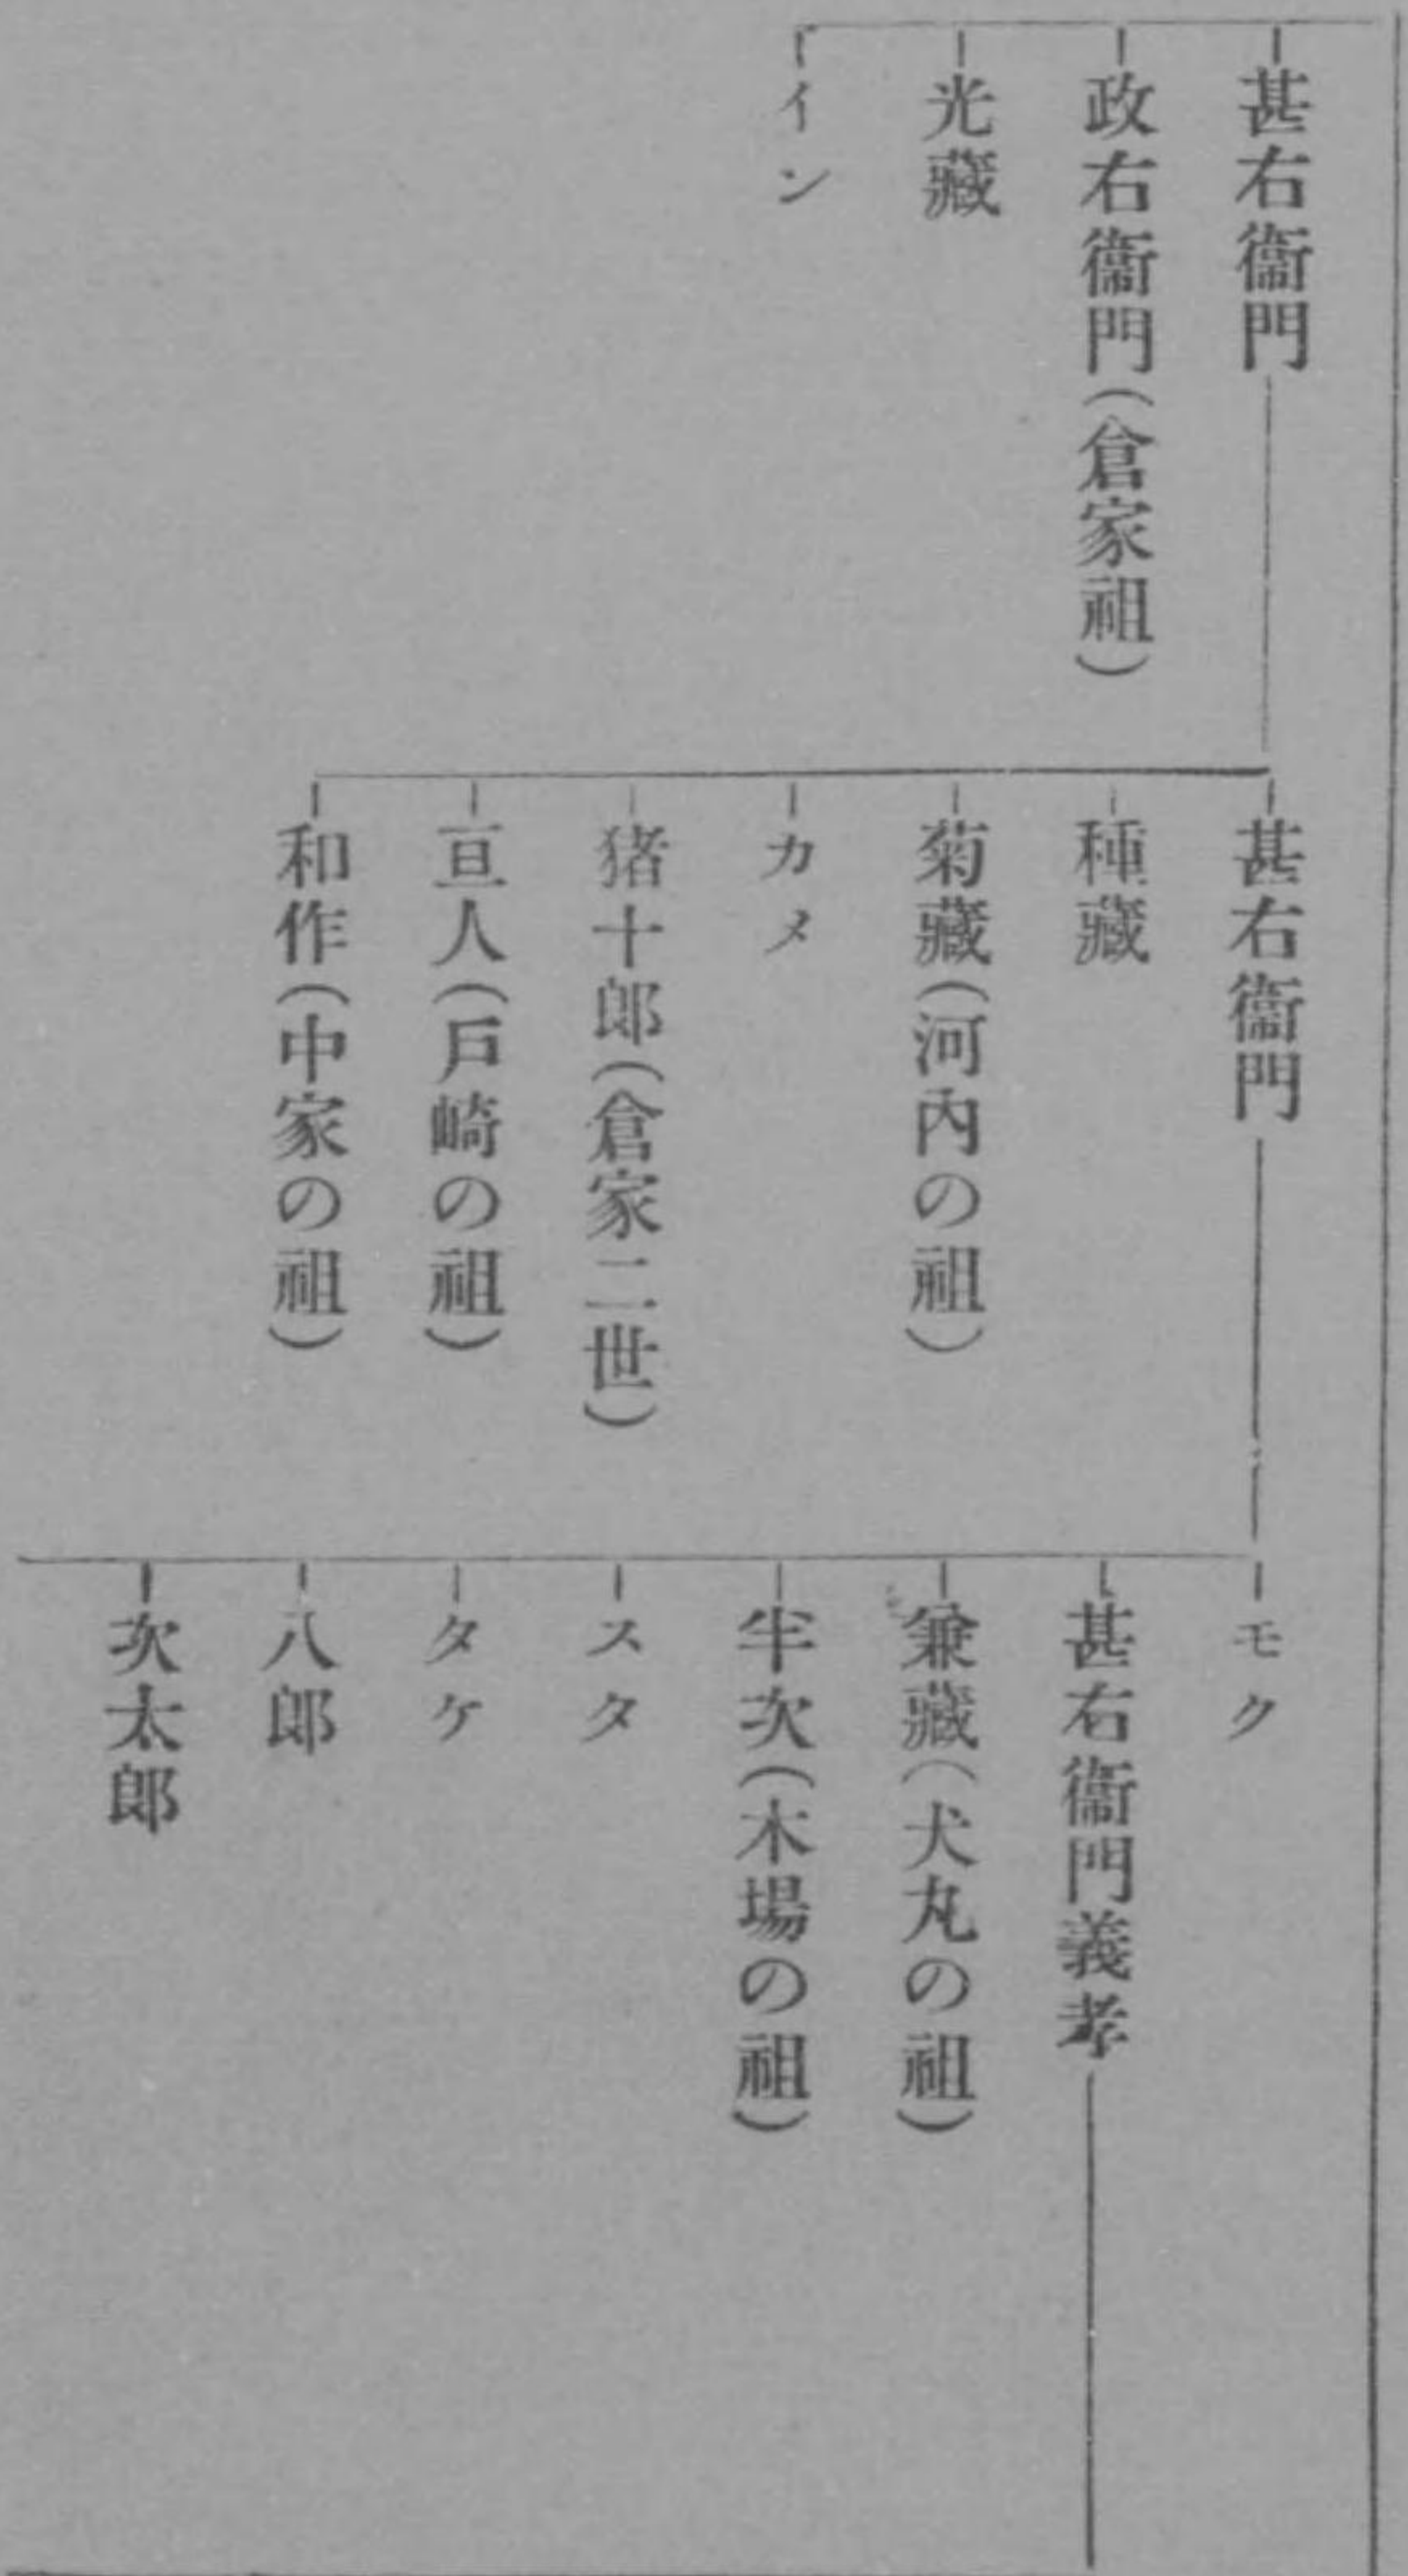 甚右衞門
政右衞門(倉家祖)
光藏
イン
甚右衞門
種藏
菊藏(河內の祖)
カメ
猪十郎(倉家二世)
亘人(戸崎の祖)
和作(中家の祖)
モク
甚右衞門義孝
兼藏(犬丸の祖)
半次(木場の祖)
スタ
タケ
八郎
次太郎